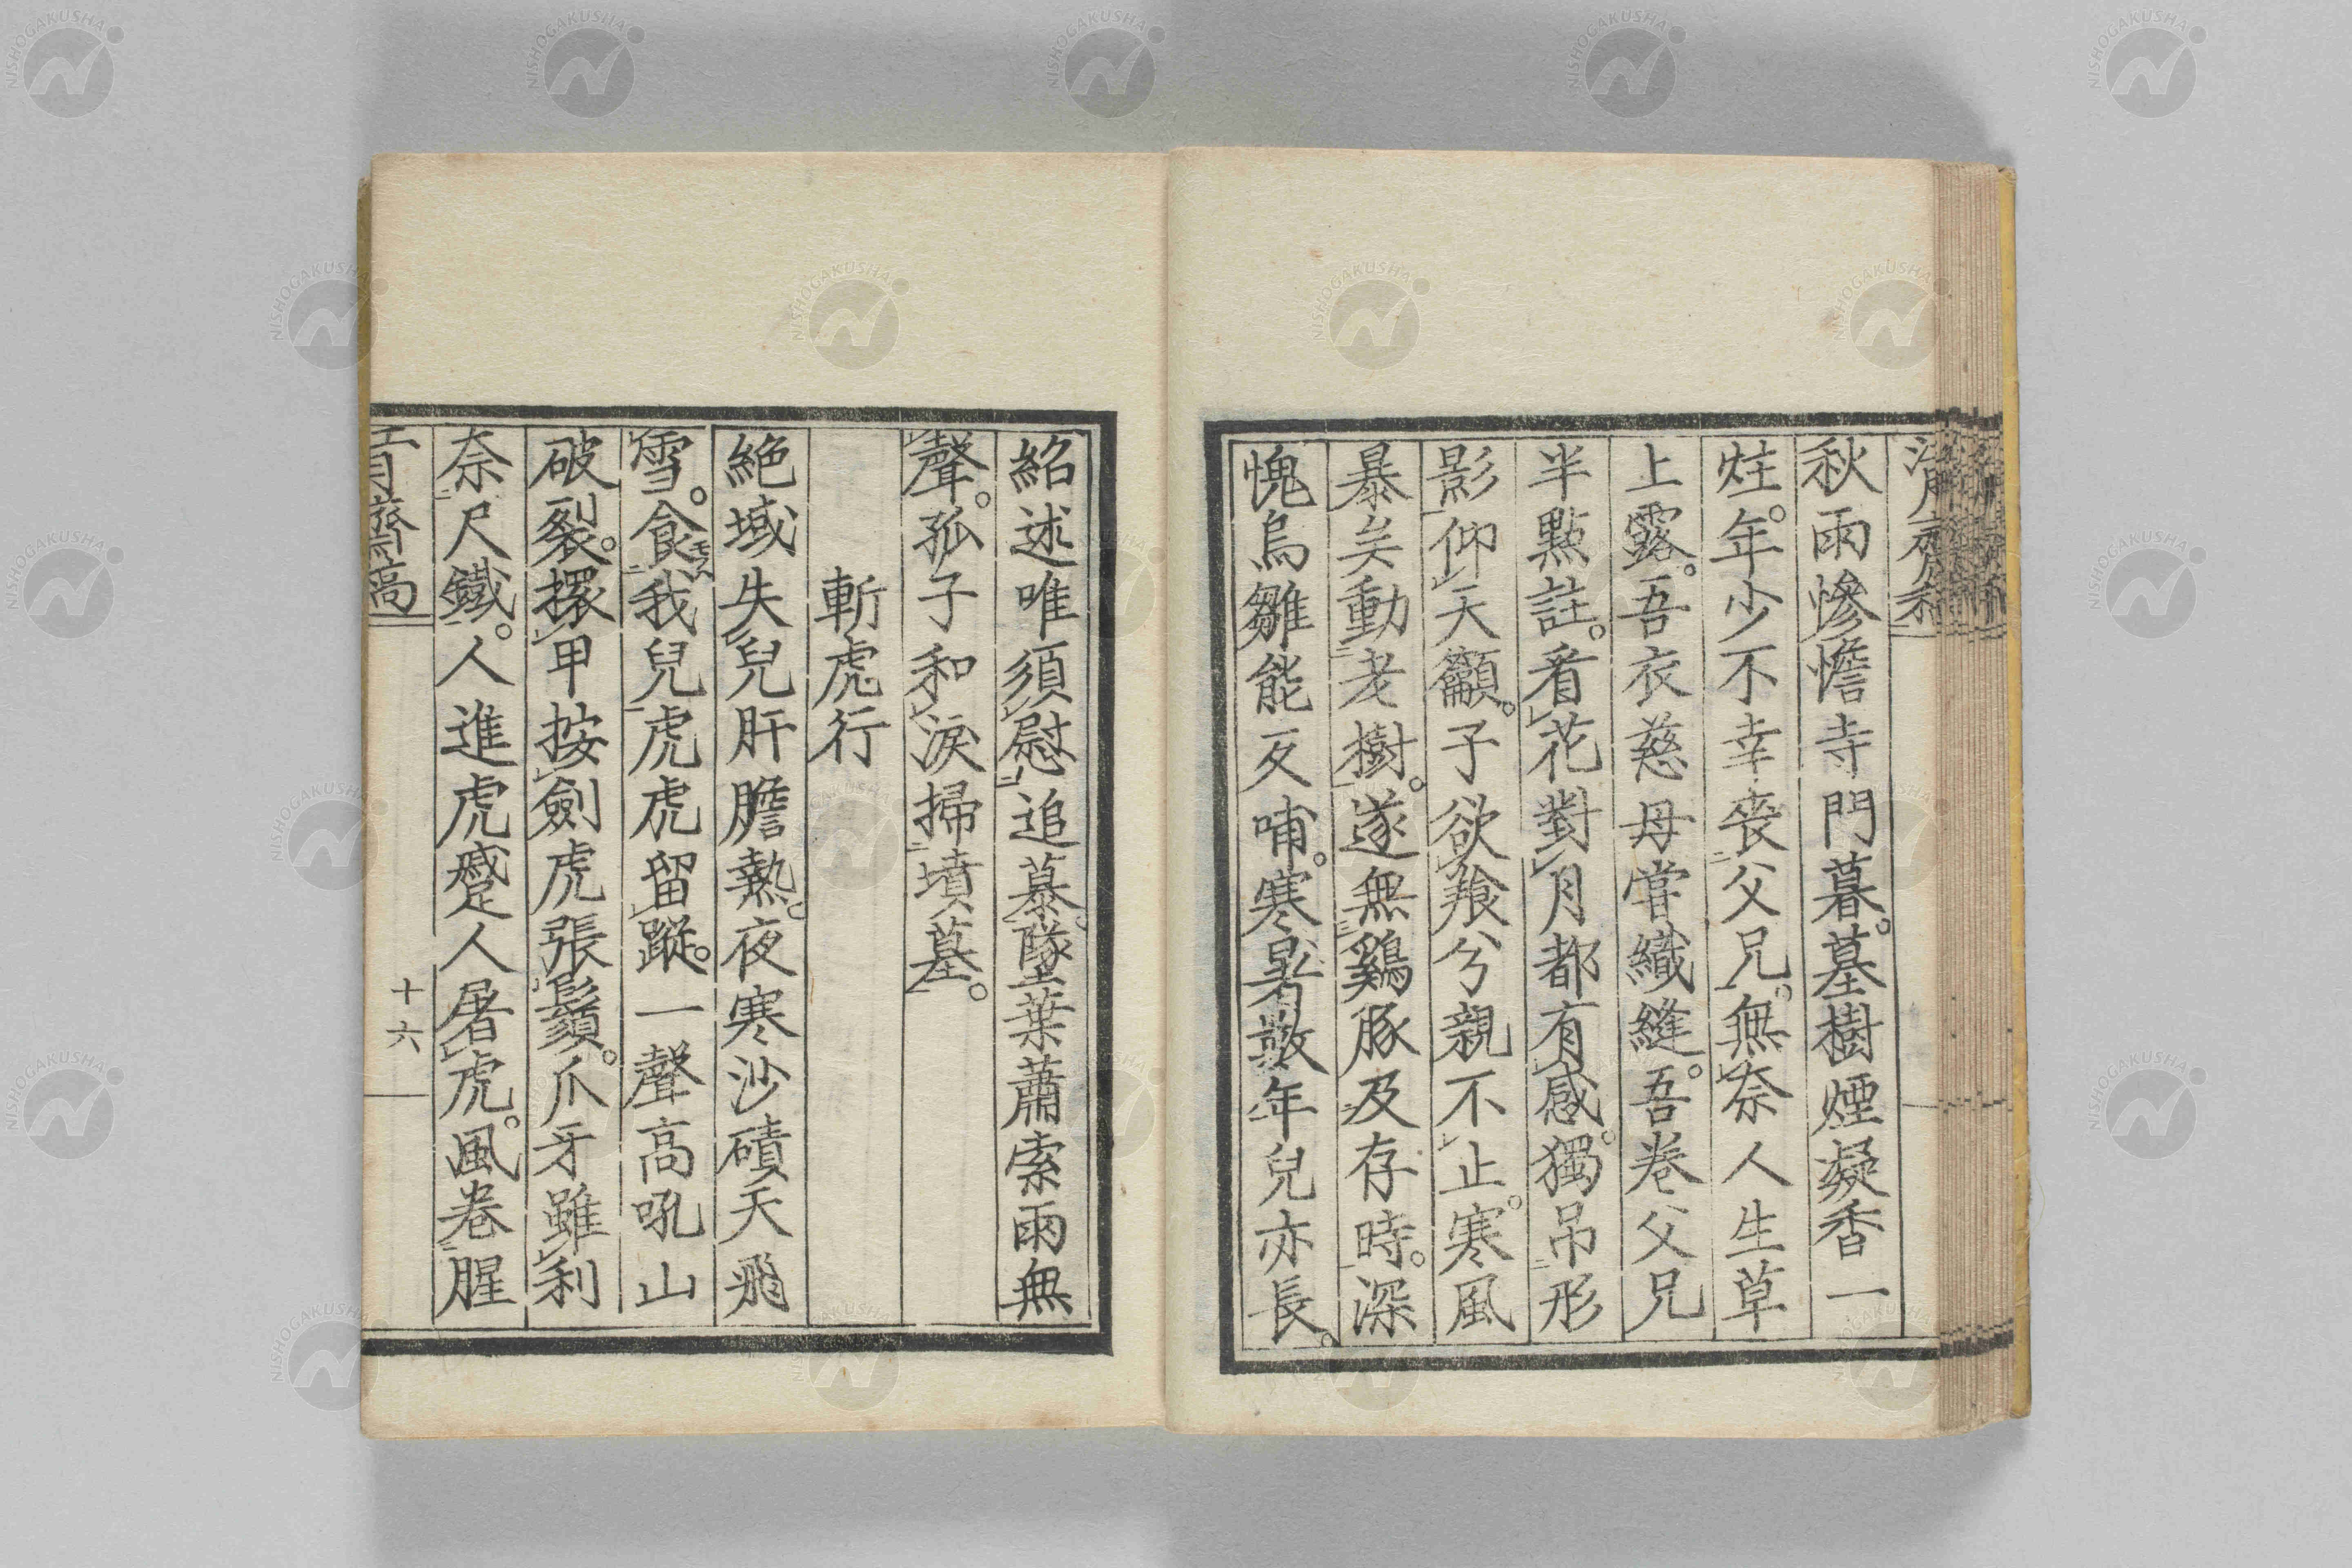 秋雨慘憺寺門暮。墓樹煙凝香一
炷。年少不幸喪父兄。無奈人生草
上露。吾衣慈母嘗織縫。吾卷父兄
半點註。看花對月都有感。獨吊形
影仰天籲。子欲養兮親不止。寒風
暴矣動老樹。遂無鷄豚及存時。深
愧烏雛能反哺。寒暑數年兒亦長。
紹述唯須慰追慕。墜葉蕭索雨無
聲。孤子和淚掃墳墓。
斬虎行
絶域失兒肝膽熱。夜寒沙磧天飛
雪。食我兒虎虎留蹤。一聲高吼山
破裂。擐甲按劍虎張鬚。爪牙雖利
奈尺鐵。人進虎蹙人屠虎。風卷腥
齋稿
十六
NISHOGAKUSHA